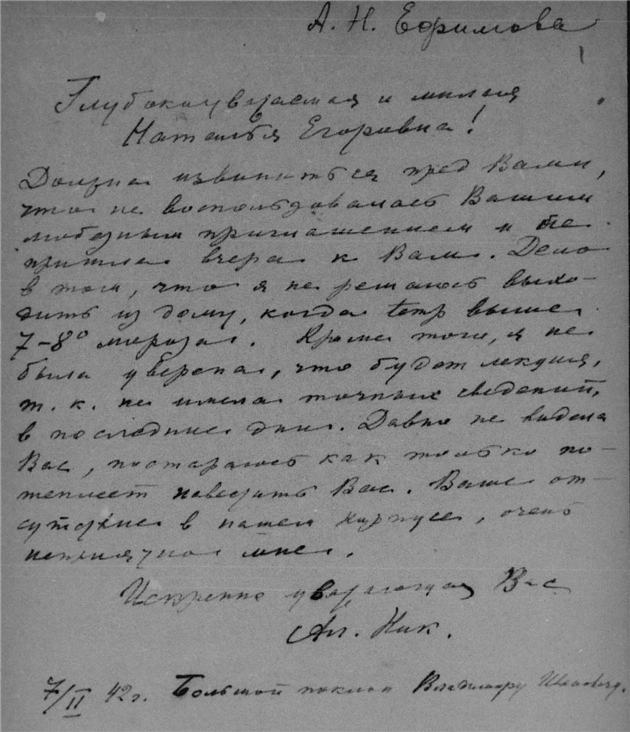 А. Н. Ефимова
Глубокоуважаемая и милая
Наталья Егоровна!
Должна извиниться пред Вами,
что не воспользовалась Вашим
любезным приглашением и не
пришла вчера к Вам. Дело
в том, что я не решаюсь выхо-
дить из дому, когда tемр выше
7–8° мороза. Кроме того, я не
была уверена, что будет лекция,
т. к. не имела точных сведений,
в последние дни. Давно не видела
Вас, постараюсь как только по-
теплеет навестить Вас. Ваше от-
сутствие в нашем корпусе, очень
неприятно мне.
Искренно уважающая Вас
Ал. Ник.
7/II 42 г. Большой поклон Владимиру